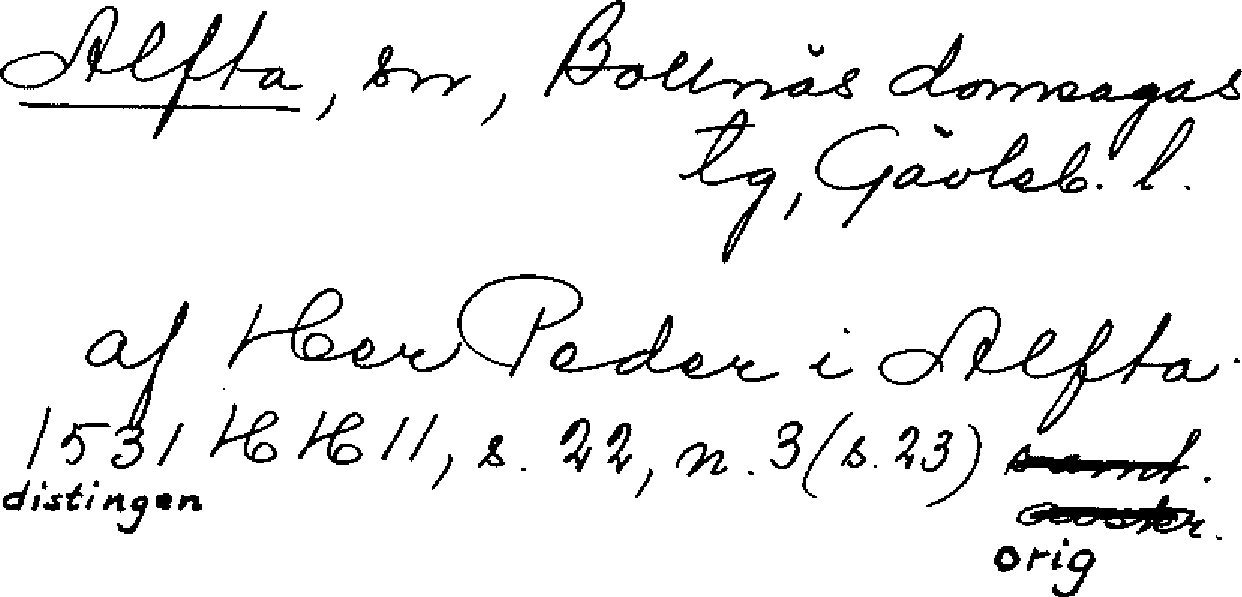 Alfta, sn, Bollnäs domsagas
tg, Gävleb. l.
af Her Peder i Alfta.
1531 HH 11, s. 22, n. 3 (s. 23) samt.
distingen
orig